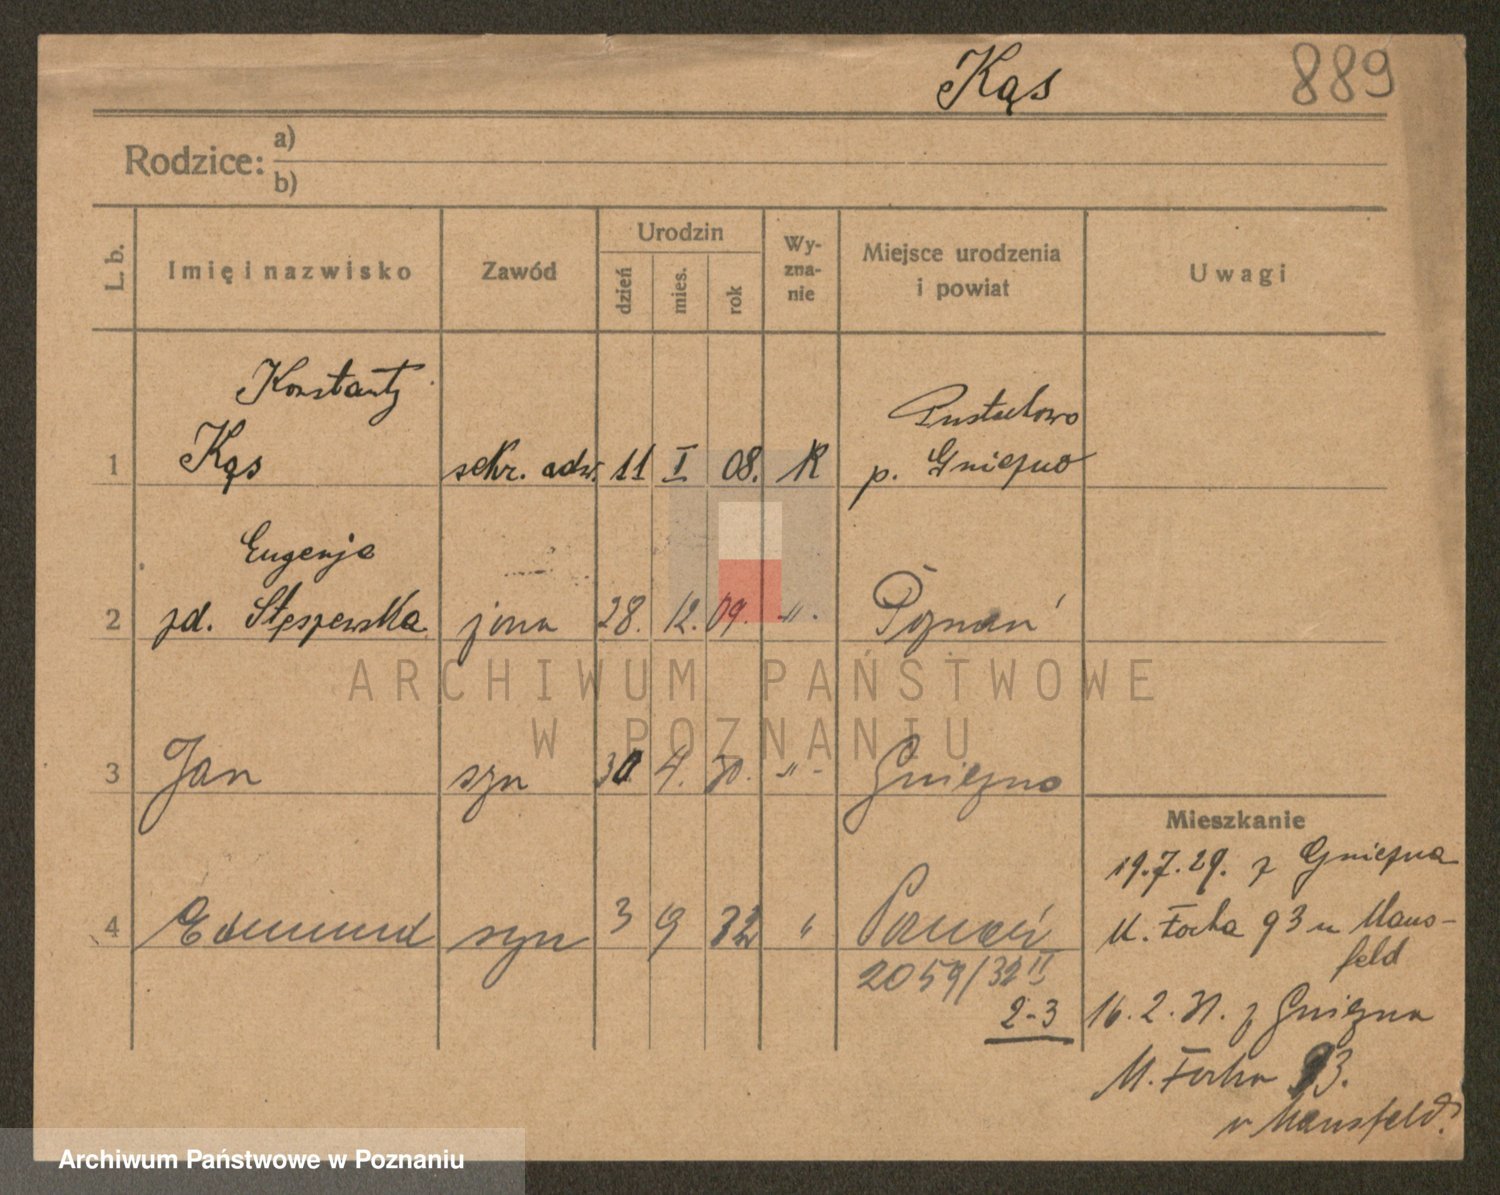 Kąs
889
Rodzice: a)
b)
L. b.
Imię i nazwisko
Zawód
Urodzin
dzień
mies.
rok
Wy-
zna-
nie
Miejsce urodzenia
i powiat
Uwagi
Konstanty
Pustachowo
1 Kąs sekr. adw. 11 I 08. R p. Gniezno
Eugenja
2 zd. Stęszewska żona 28. 12. 09. -"- Poznań
ARCHIWUM PAŃSTWOWE
W POZNANIU
3 Jan syn 30 4. 30. -"- Gniezno
4 Edmund syn 3 9 32 " Poznań
2059/32 II
2-3
Mieszkanie
19.7.29. z Gniezna
M. Focha 93 u Mans-
feld
16.2.31. z Gniezna
M. Focha 93.
u Mansfeld.
Archiwum Państwowe w Poznaniu